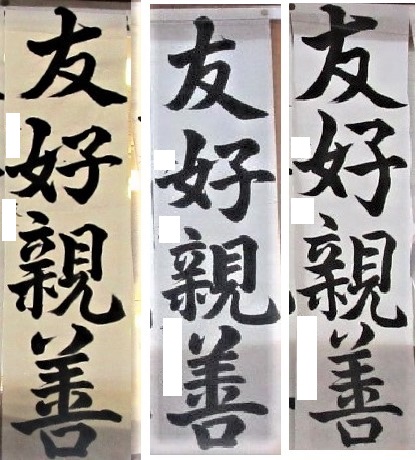 友好親善
友好親善
友好親善